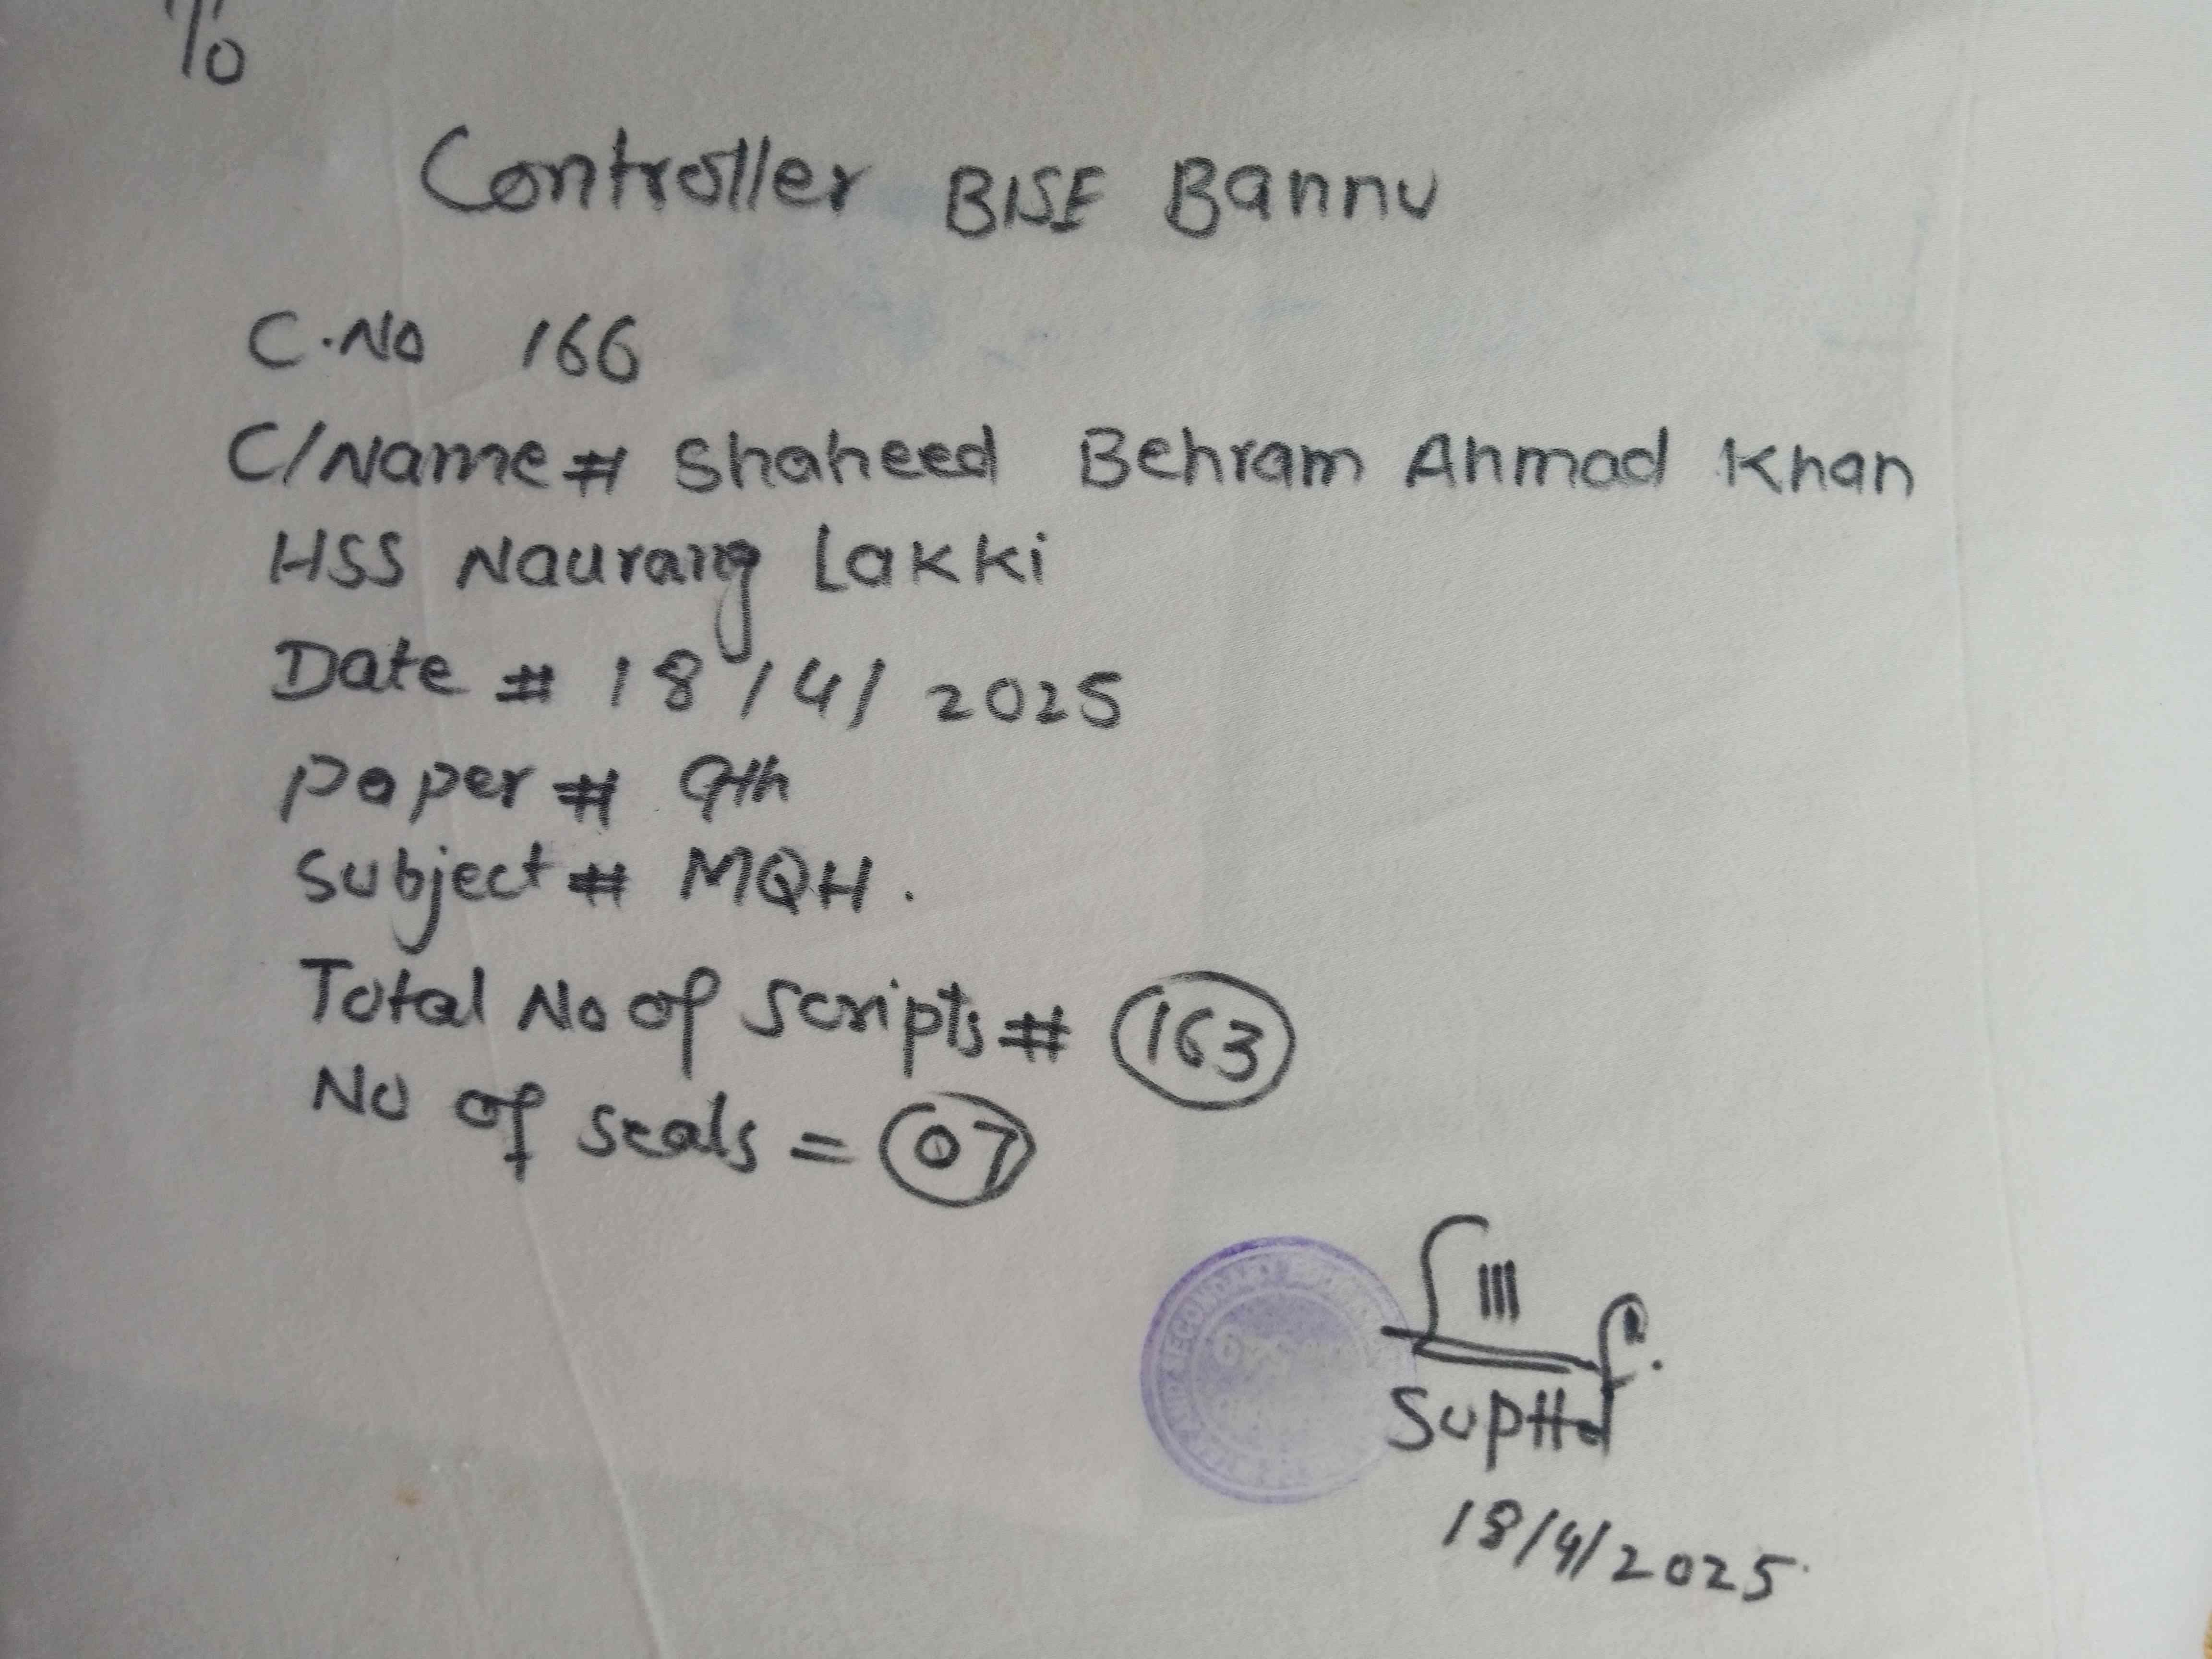 To
Controller BISE Bannu
C.No 166
C/Name # Shaheed Behram Ahmad Khan
HSS Naurang Lakki
Date # 18/4/2025
Paper # 9th
Subject # MQH.
Total No of Scripts # 163
No of seals = 07
SECONDARY
Suptdt
18/4/2025